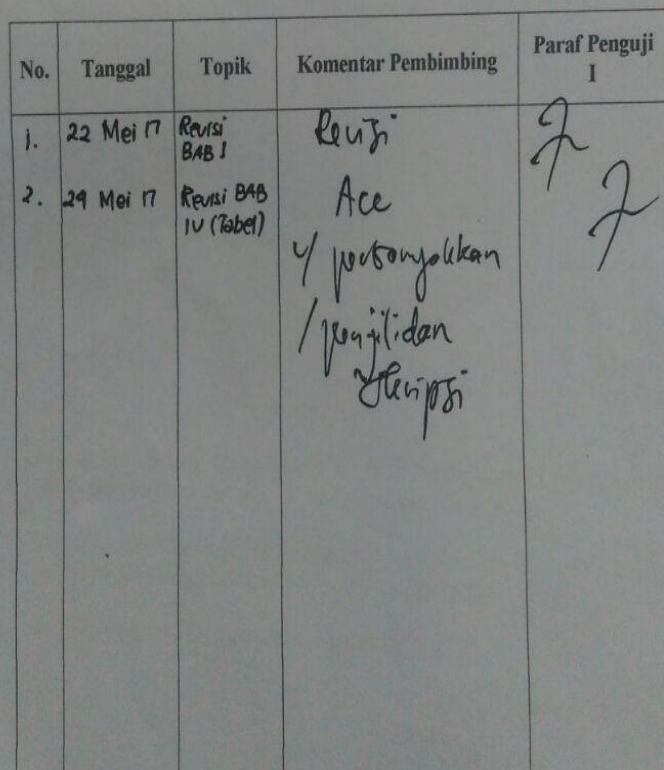 No. Tanggal Topik Komentar Pembimbing Paraf Penguji I
1. 22 Mei 17 Revisi BAB I Revisi
2. 29 Mei 17 Revisi BAB IV (Tabel) Acc
y/ perbanyakkan
/ penjilidan
Skripsi